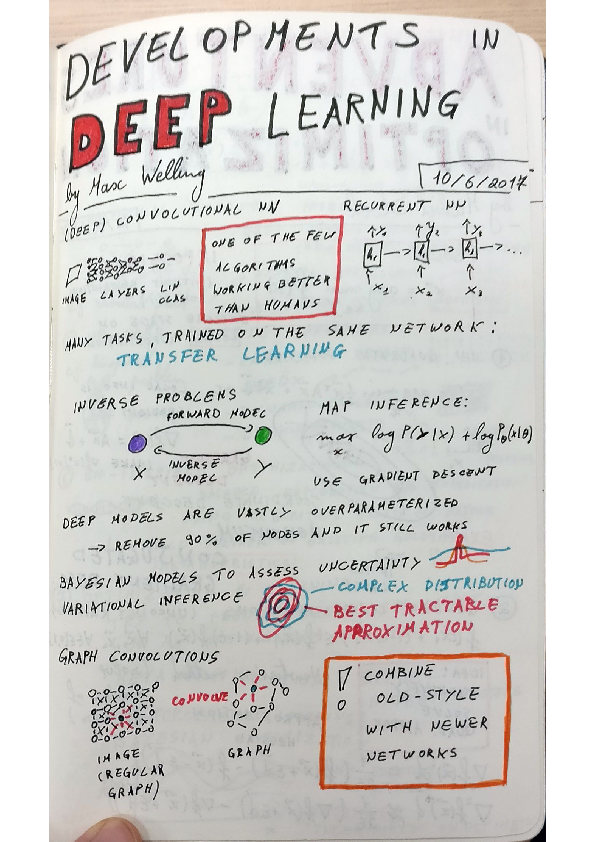 DEVELOPMENTS IN
DEEP LEARNING
by Max Welling
10/6/2017
(DEEP) CONVOLUTIONAL NN
IMAGE LAYERS LIN
CLAS
ONE OF THE FEW
ALGORITHMS
WORKING BETTER
THAN HUMANS
RECURRENT NN
y₁ y₂ y₃
h₁ → h₂ → h₃ → ...
x₁ x₂ x₃
MANY TASKS, TRAINED ON THE SAME NETWORK:
TRANSFER LEARNING
INVERSE PROBLEMS
FORWARD MODEL
INVERSE
MODEL
X Y
MAP INFERENCE:
max log P(y|x) + log Pθ(x|θ)
x
USE GRADIENT DESCENT
DEEP MODELS ARE VASTLY OVERPARAMETERIZED
→ REMOVE 90% OF NODES AND IT STILL WORKS
BAYESIAN MODELS TO ASSESS UNCERTAINTY
VARIATIONAL INFERENCE
COMPLEX DISTRIBUTION
BEST TRACTABLE
APPROXIMATION
GRAPH CONVOLUTIONS
CONVOLVE
IMAGE
(REGULAR
GRAPH)
GRAPH
! COMBINE
OLD-STYLE
WITH NEWER
NETWORKS